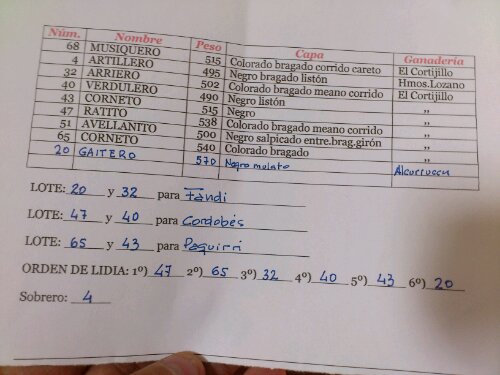 Núm. Nombre Peso Capa Ganadería
68 MUSIQUERO 515 Colorado bragado corrido careto El Cortijillo
4 ARTILLERO 495 Negro bragado listón Hmos.Lozano
32 ARRIERO 502 Colorado bragado meano corrido El Cortijillo
40 VERDULERO 490 Negro listón „
43 CORNETO 515 Negro „
47 RATITO 538 Colorado bragado meano corrido „
51 AVELLANITO 500 Negro salpicado entre.brag.girón „
65 CORNETO 540 Colorado bragado „
20 GAITERO 570 Negro mulato Alcurrucen
LOTE: 20 y 32 para Fandi
LOTE: 47 y 40 para Cordobés
LOTE: 65 y 43 para Paquirri
ORDEN DE LIDIA: 1º) 47 2º) 65 3º) 32 4º) 40 5º) 43 6º) 20
Sobrero: 4